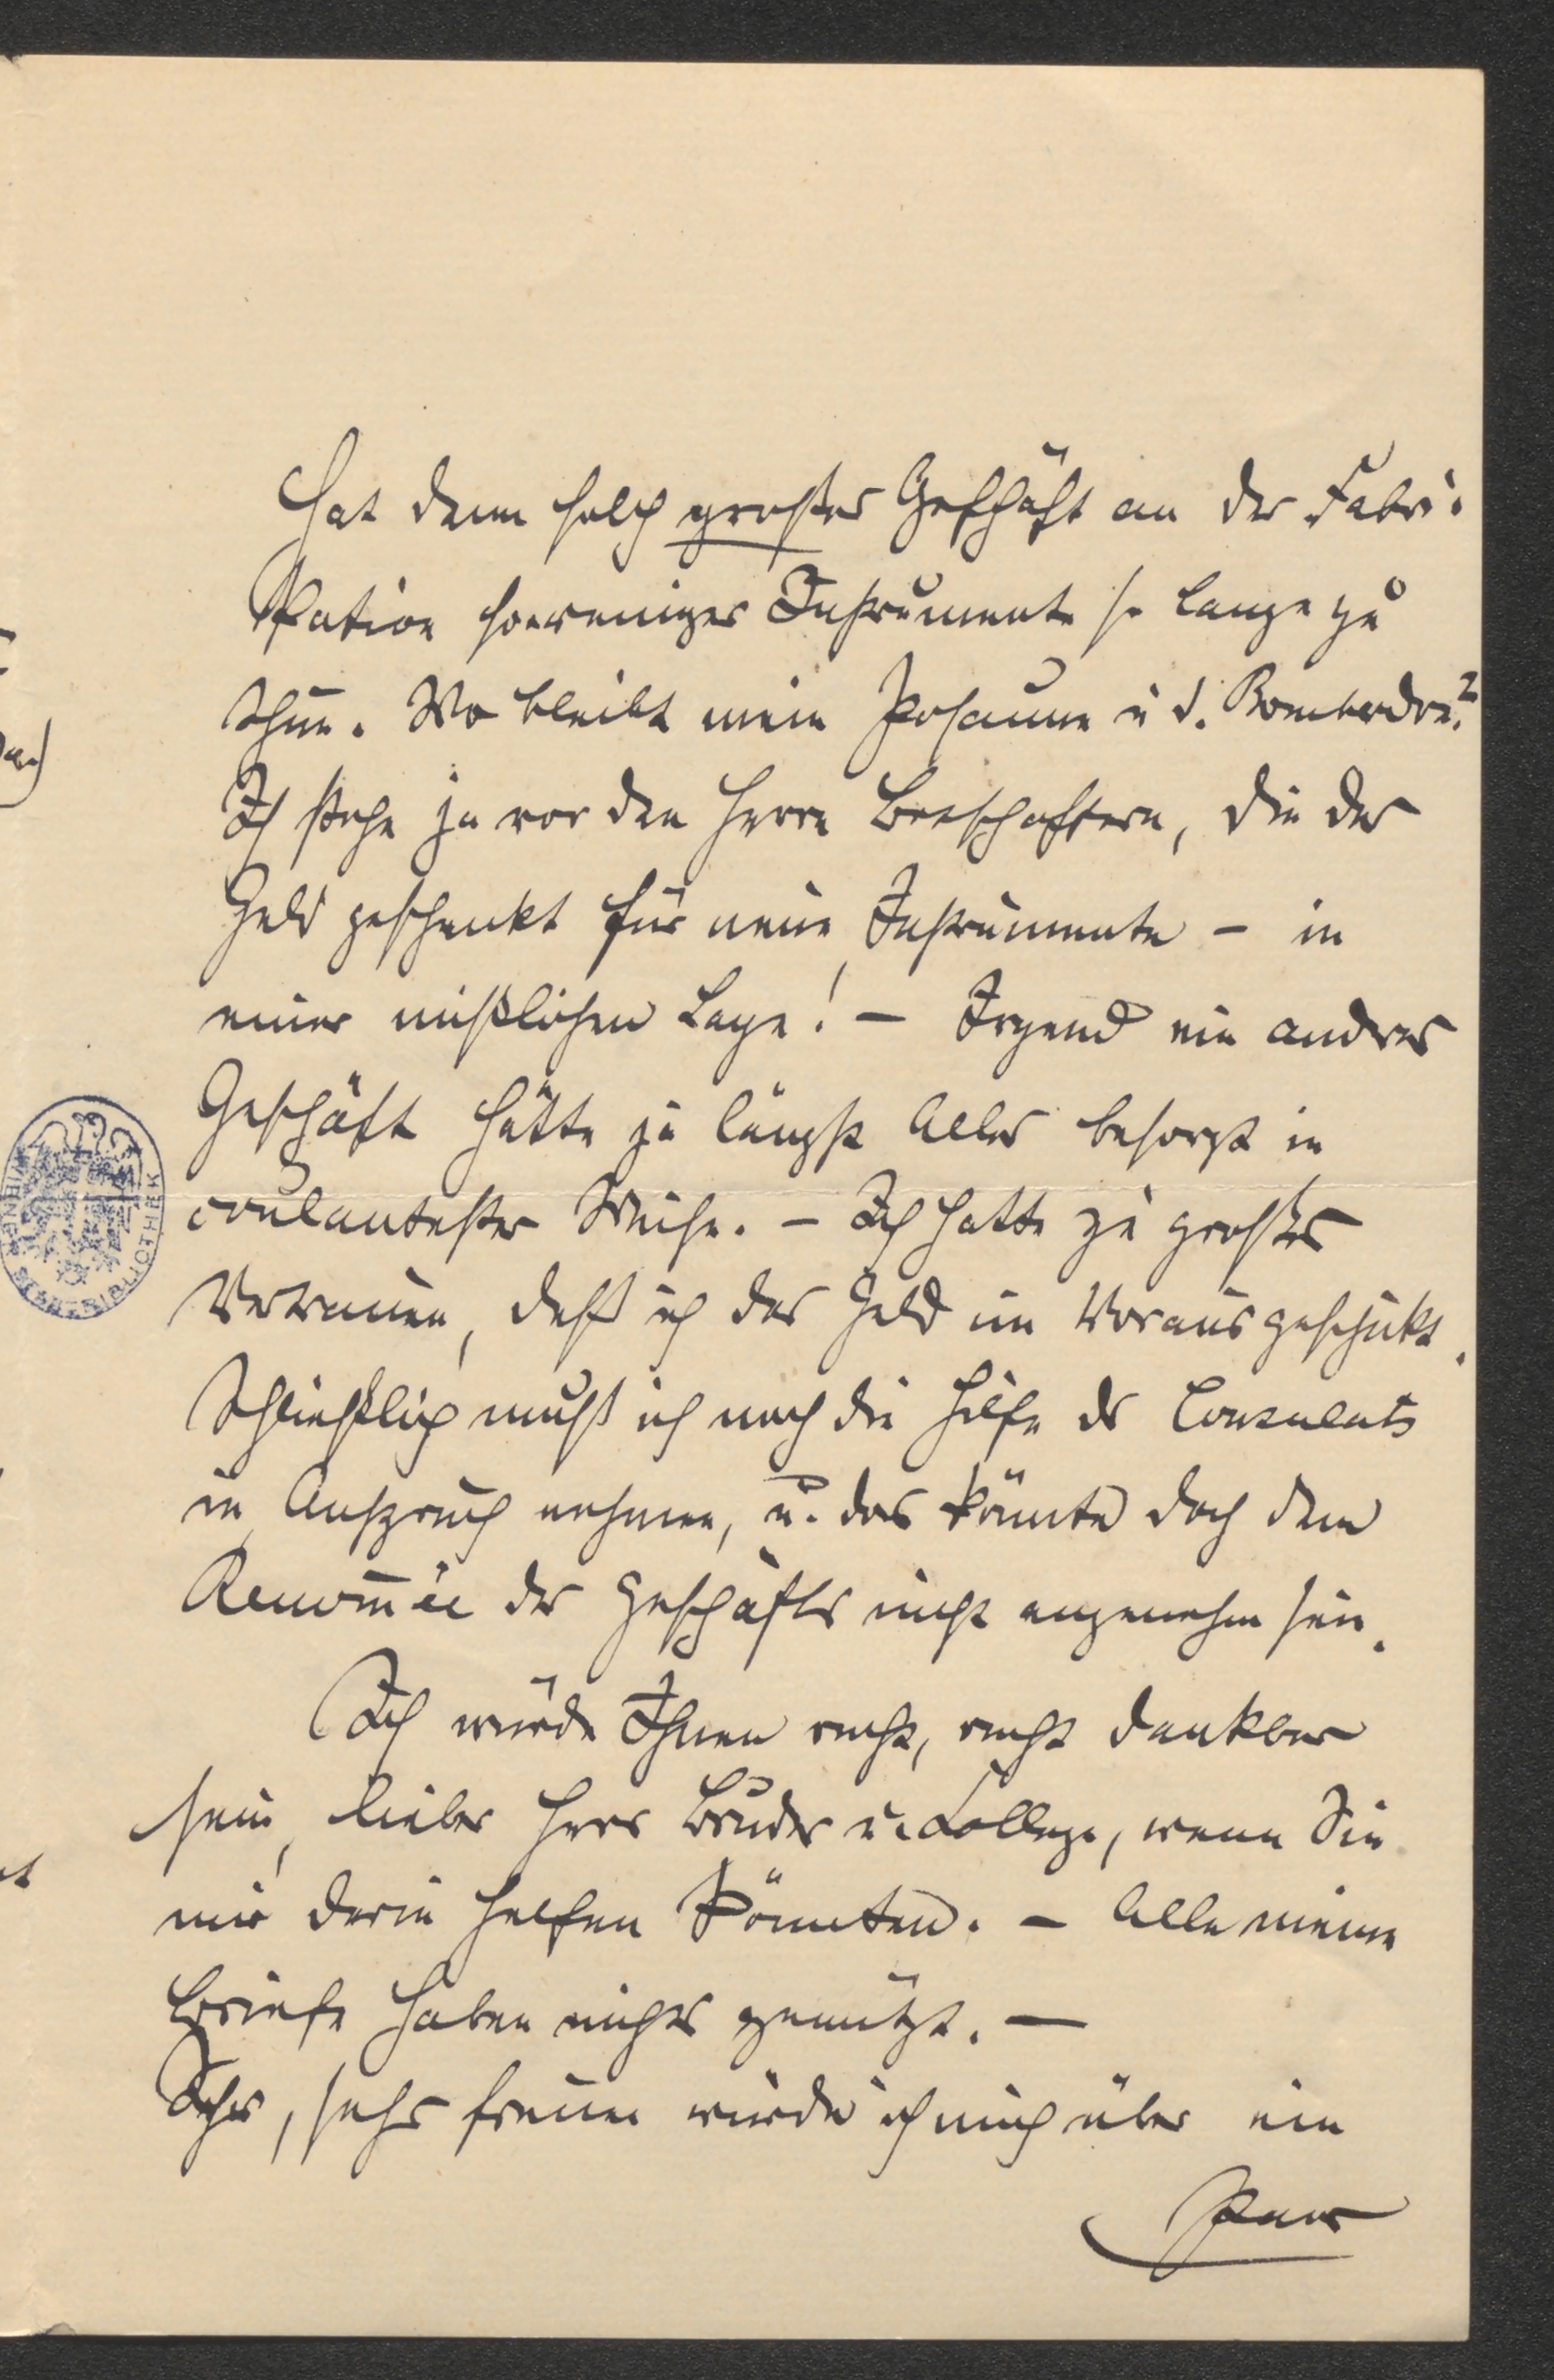 Hat denn solch großes Geschäft an der Fabri-
kation so weniger Instrumente so lange zu
thun. Wo bleibt mein Posaune u. d. Bombardon?
Ich stehe ja vor den Herrn Botschaftern, die das
Geld geschenkt für neue Instrumente – in
einer mißlichen Lage! – Irgend ein andres
Geschäft hätte ja längst Alles besorgt in
coulantester Weise. – Ich hatte zu großes
Vertrauen, daß ich das Geld im Voraus geschickt.
Schließlich muß ich noch die Hilfe des Consulats
in Anspruch nehmen, u. das könnte doch dem
Renom̄ée des Geschäfts nicht angenehm sein.
Ich würde Ihnen recht, recht dankbar
sein, lieber Herr Bruder u. College, wenn Sie
mir darin helfen könnten. – Alle meine
Briefe haben nichts genützt. –
Sehr, sehr freuen würde ich mich über ein
Paar
WIENER
STADT-BIBLIOTHEK